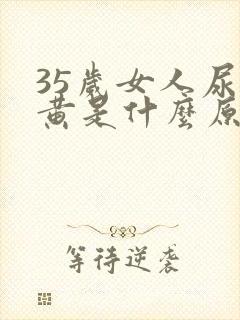 35歲女人尿
黃是什麼原
等待逆袭